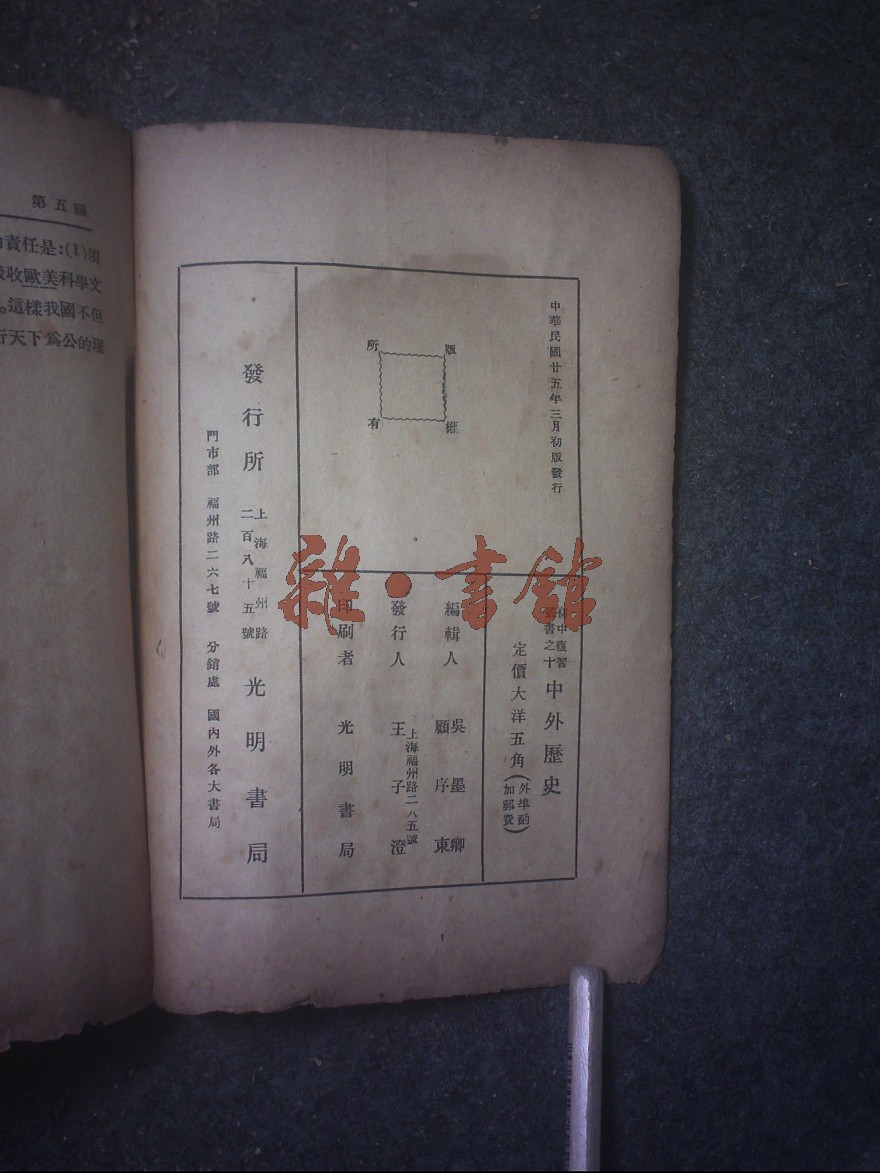 中華民國廿五年三月初版發行
版權
所有
中復習
叢書之十
中外歷史
定價大洋五角
(外埠酌
加郵費)
編輯人 吳墨卿
顧序東
發行人 王子澄
上海福州路二八五號
印刷者 光明書局
發行所 上海福州路
二百八十五號
光明書局
門市部 福州路二六七號 分銷處 國內外各大書局
雜·書館
第五編
責任是:(1)須
收歐美科學文
。這樣我國不但
行天下爲公的理